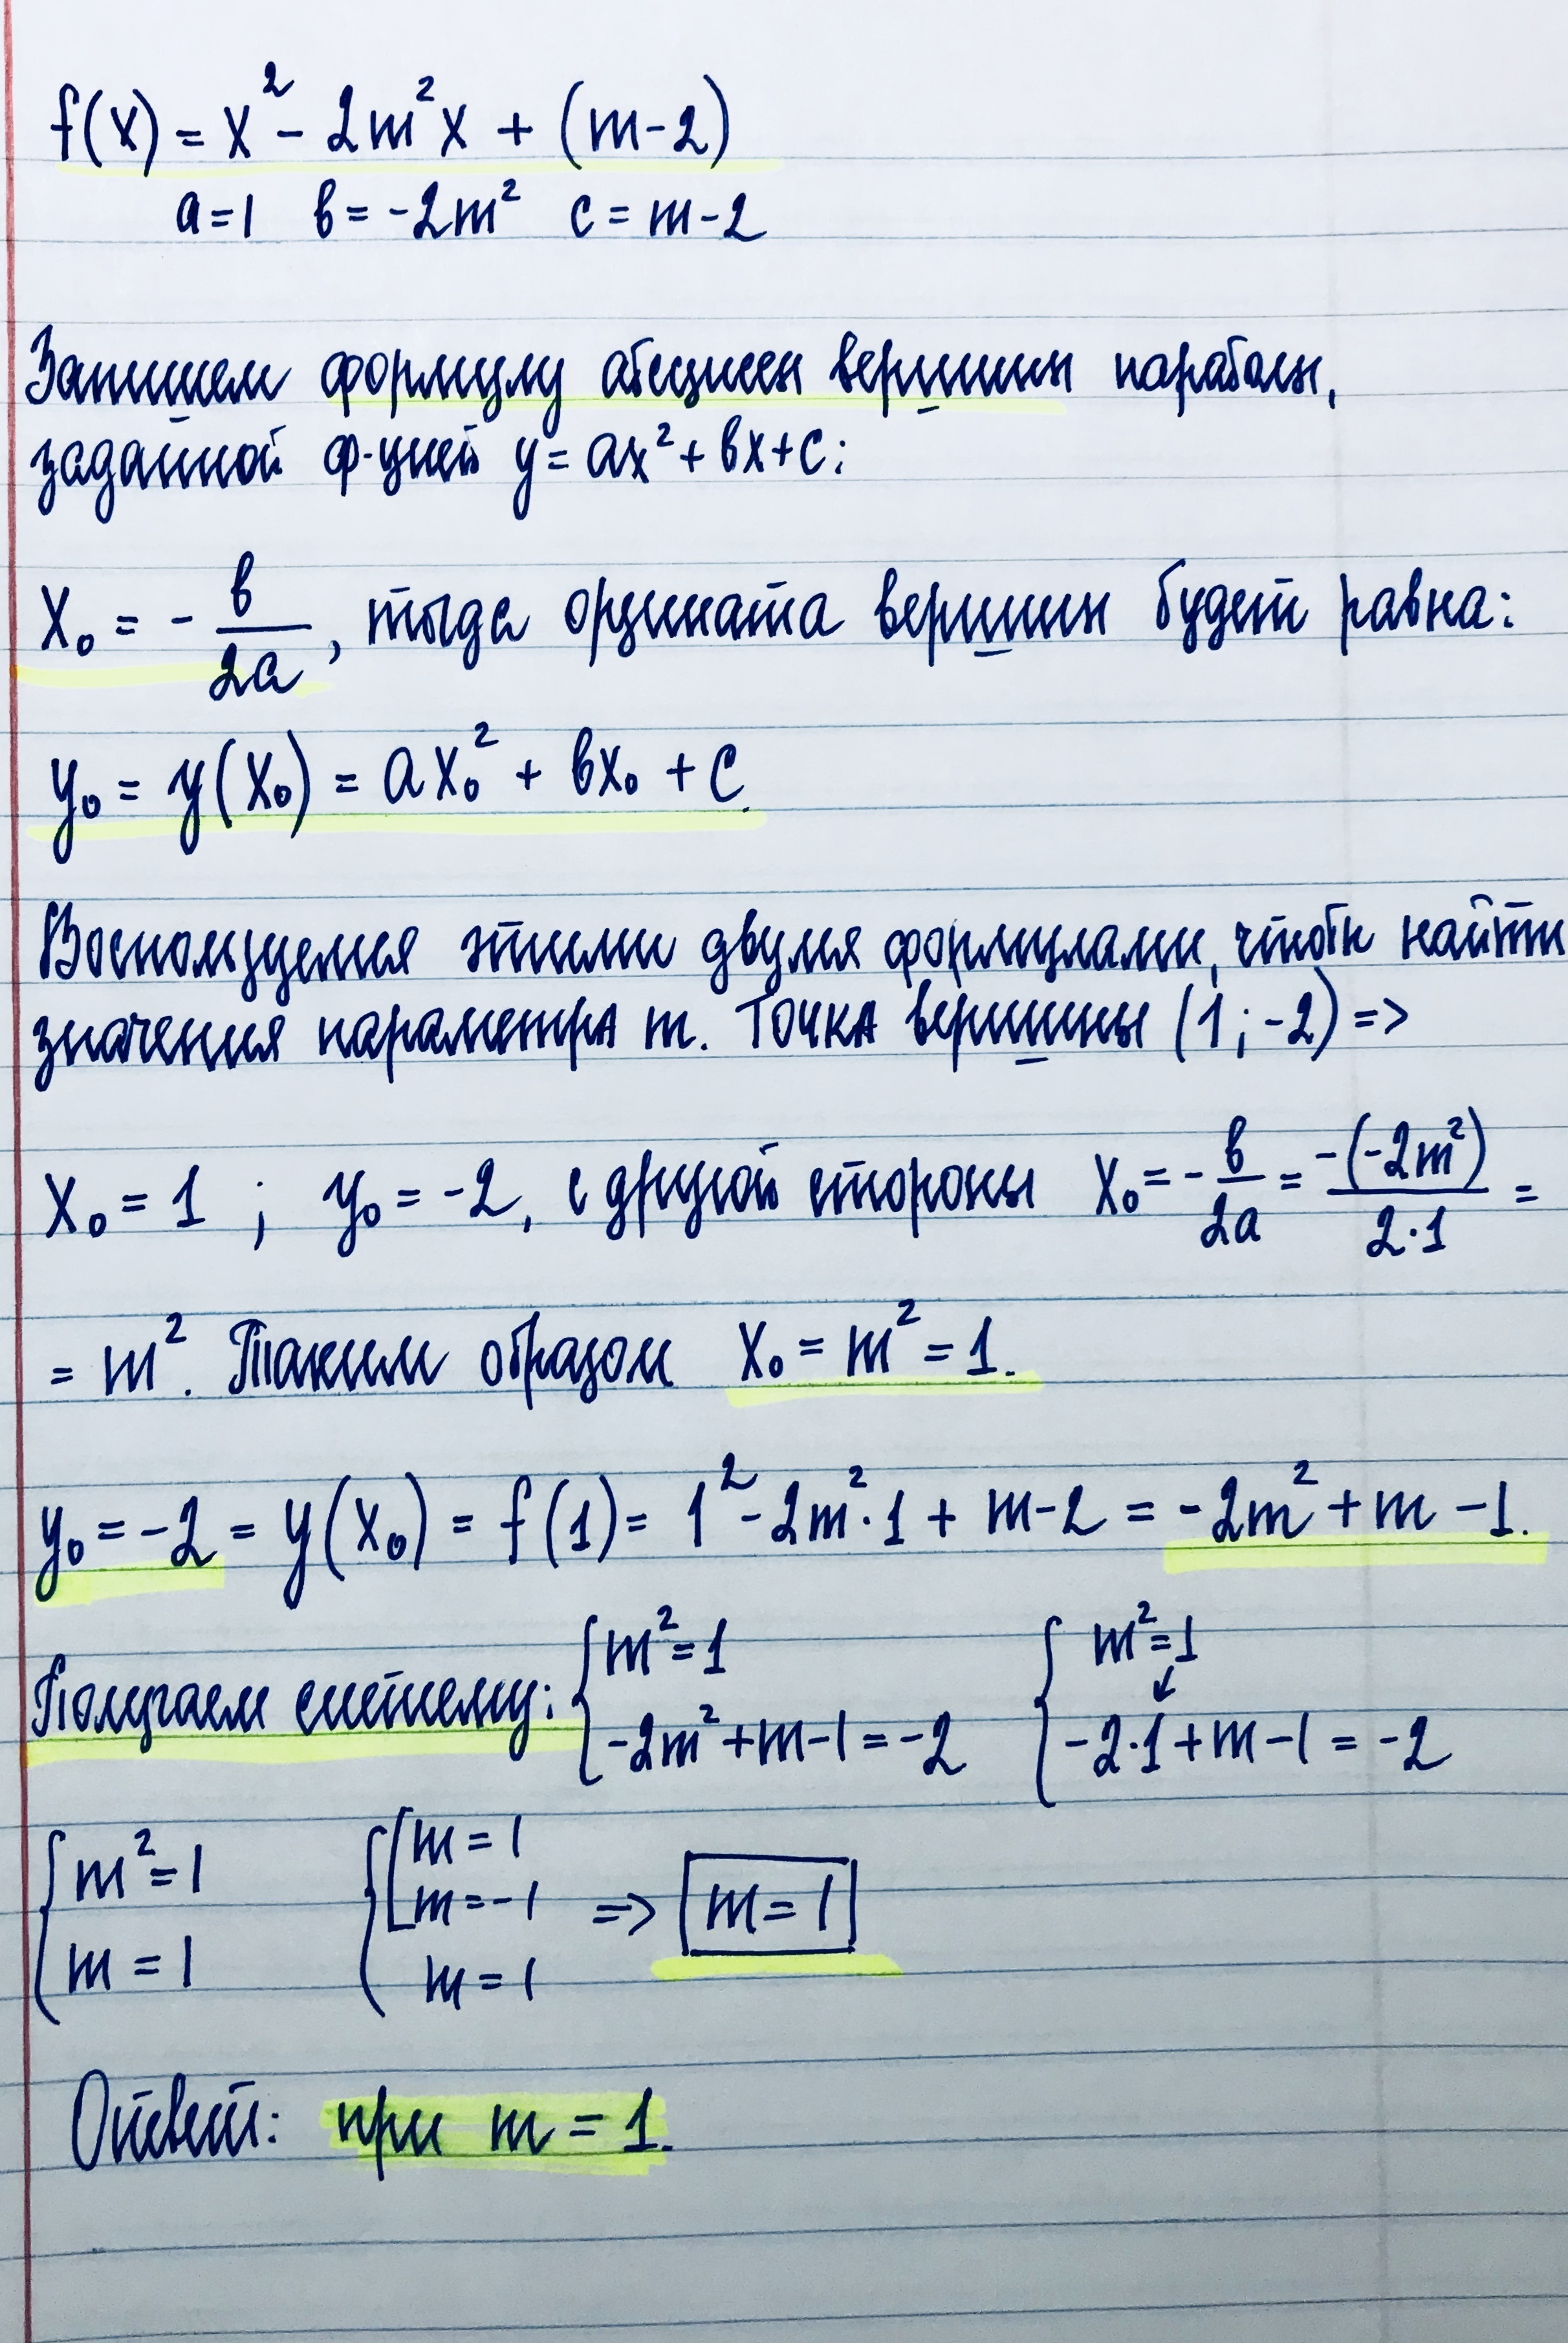 f(x) = x² - 2m²x + (m-2)
a=1 в= -2m² c = m-2
Запишем формулу абсциссы вершины параболы,
заданной ф-цией y= ax² + вx+c:
x₀ = - в/2a, тогда ордината вершины будет равна:
y₀ = y(x₀) = ax₀² + вx₀ + c.
Воспользуемся этими двумя формулами, чтобы найти
значения параметра m. Точка вершины (1; -2) =>
x₀ = 1 ; y₀ = -2, с другой стороны x₀ = - в/2a = -(-2m²)/2·1 =
= m². Таким образом x₀ = m² = 1.
y₀ = -2 = y(x₀) = f(1) = 1² - 2m²·1 + m-2 = -2m² + m -1.
Получаем систему: { m² = 1 { m² = 1
-2m² + m - 1 = -2 -2·1 + m - 1 = -2
{ m² = 1 { [ m = 1
m = -1 => m = 1
m = 1 m = 1
Ответ: при m = 1.